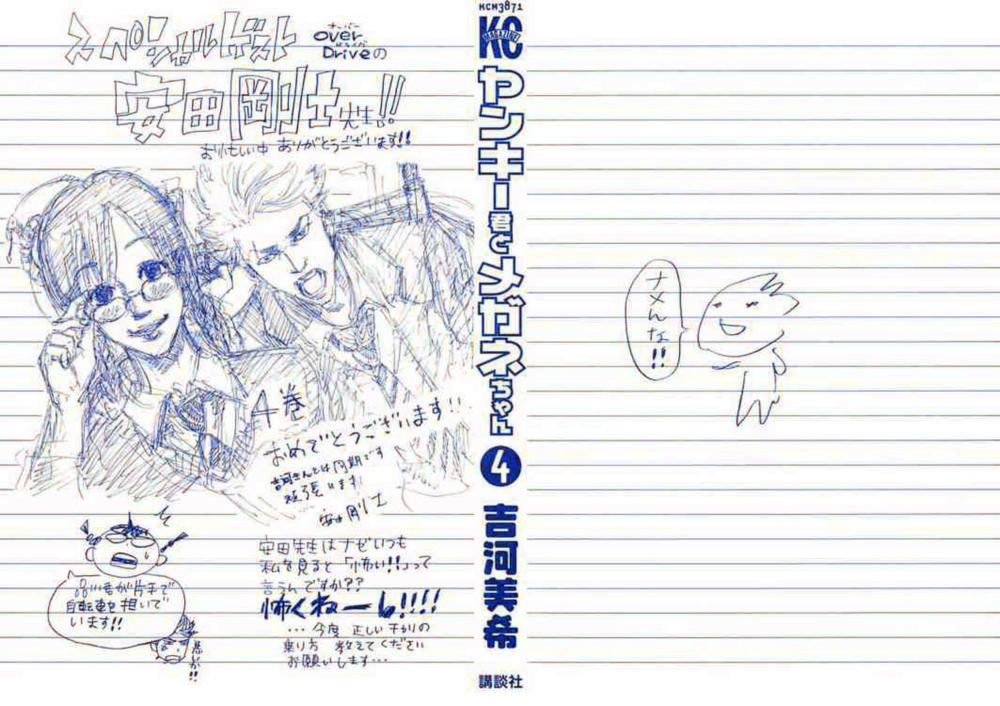 スペシャルゲスト
オーバードライヴ
over Driveの
安田剛士先生!!
おいそしい中 ありがとうございます!!
4巻
おめでとうございます!!
吉河さんとは同期です
頑張います!
安田剛士
品川君が片手で
自転車を担いで
います!!
安田先生はナゼいつも
私を見ると「怖い!!」って
言うんですか??
怖くねーし!!!!
…今度 正しいチャリの
乗り方 教えてください
お願いします…
KCM3871
KC
MAGAZINE
ヤンキー君とメガネちゃん
4
吉河美希
講談社
ナメんな!!